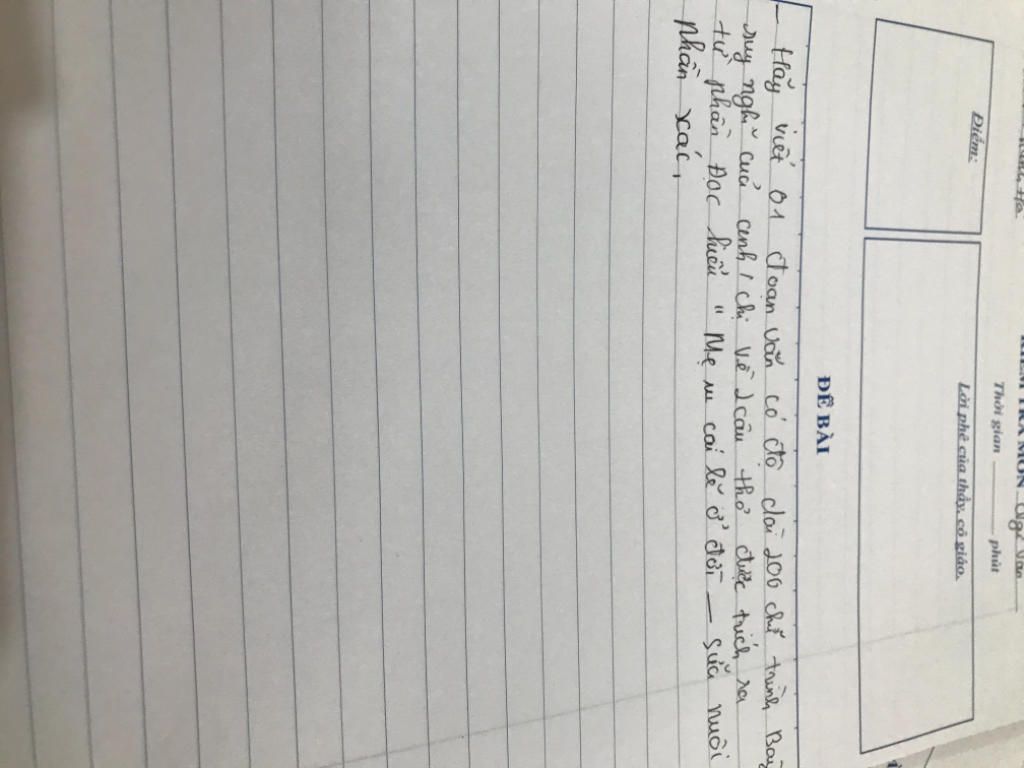 KIỂM TRA MÔN Ngữ Văn
Thời gian ______ phút
Điểm:
Lời phê của thầy, cô giáo.
ĐỀ BÀI
- Hãy viết 01 đoạn văn có độ dài 200 chữ trình Bày
suy nghĩ cuả anh / chị về 2 câu thơ được trích ra
từ phần Đọc hiểu " Mẹ ru cái lẽ ở đời — sữa nuôi
phần xác,